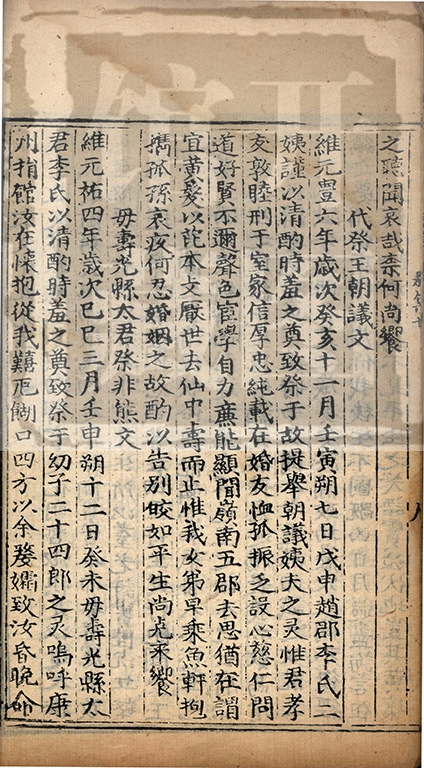 之聴聞哀哉奈何尚饗
代祭王朝議文
維元豊六年歳次癸亥十一月壬寅朔七日戊申趙郡李氏二
姨謹以清酌時羞之奠致祭于故提舉朝議姨夫之灵惟君孝
友敦睦刑于室家信厚忠純載在婚友恤孤振乏設心慈仁問
道好賢不邇聲色宦學自力蔗能顯聞嶺南五郡去思猶在謂
宜黄髮以陀本文厭世去仙中壽而止惟我女弟早乘魚軒抱
攜孤孫哀疚何忍婚姻之故酌以告别皎如平生尚克来饗
毋壽光縣太君祭非熊文
維元祐四年歳次己巳三月壬申朔十二日癸未毋壽光縣太
君李氏以清酌時羞之奠致祭于幼子二十四郎之灵嗚呼康
州捐館汝在懷抱從我囏厄餬口四方以余嫠孀致汝昏晩命